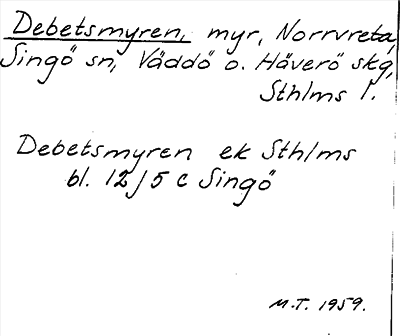 Debetsmyren, myr, Norrvreta,
Singö sn, Väddö o. Häverö skg,
Sthlms l.
Debetsmyren ek Sthlms
bl. 12/5 c Singö
M.T. 1959.